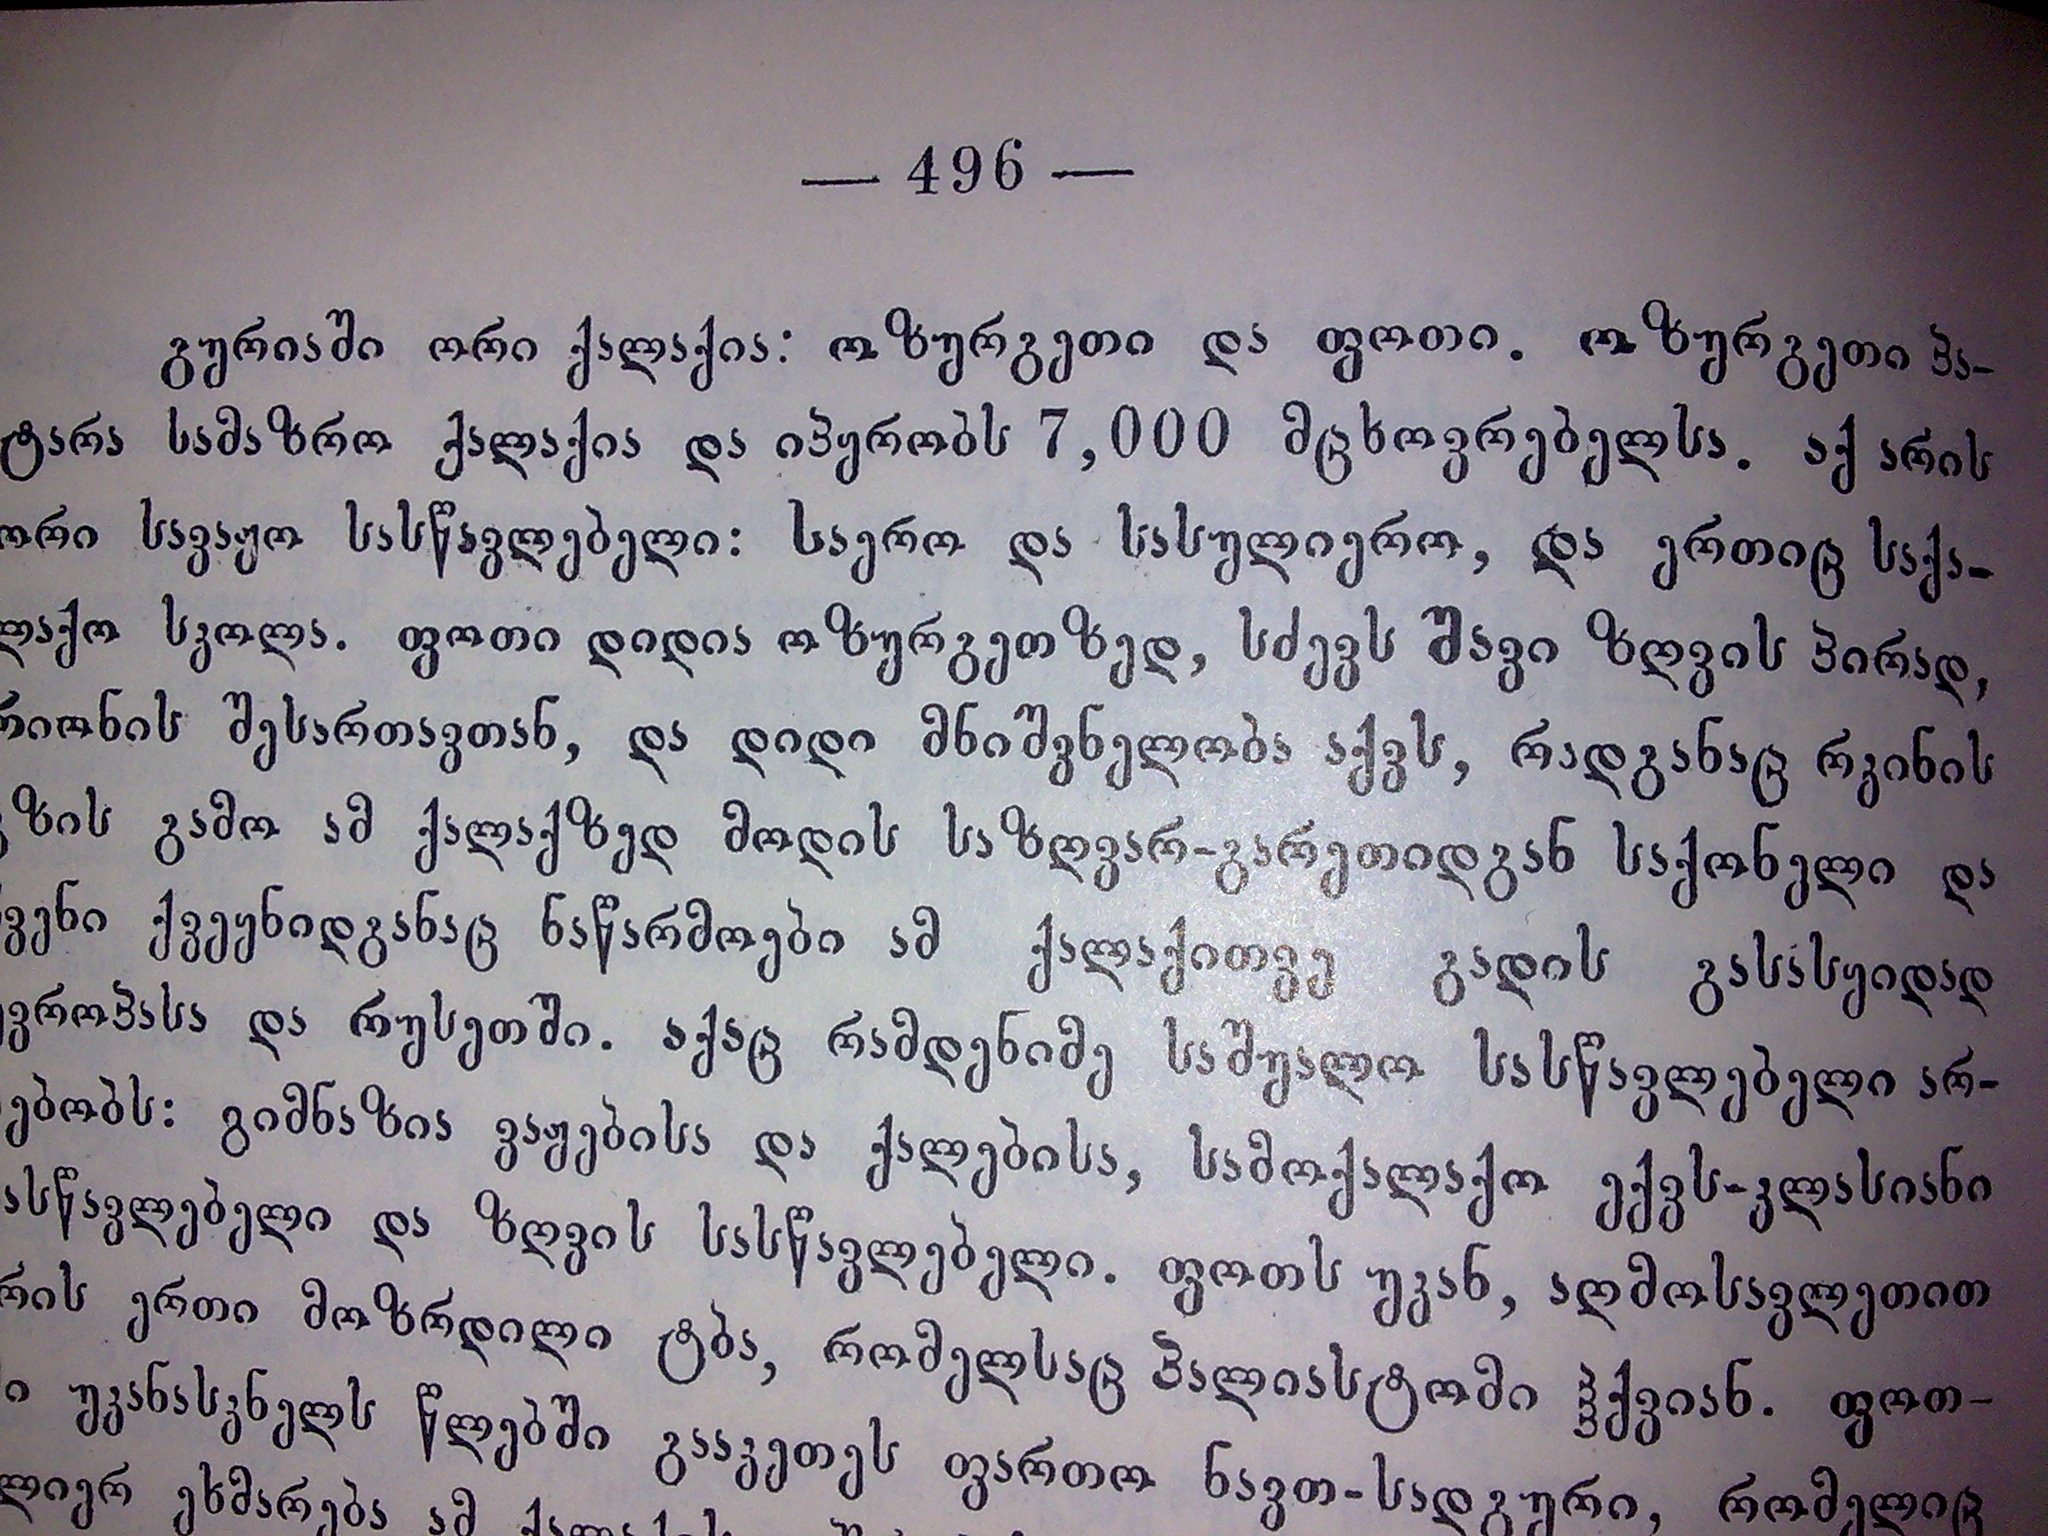 — 496 —
გურიაში ორი ქალაქია: ოზურგეთი და ფოთი. ოზურგეთი პა-
ტარა სამაზრო ქალაქია და იპყრობს 7,000 მცხოვრებელსა. აქ არის
ორი სავაჟო სასწავლებელი: საერო და სასულიერო, და ერთიც საქა-
ლაქო სკოლა. ფოთი დიდია ოზურგეთზედ, სძევს შავი ზღვის პირად,
რიონის შესართავთან, და დიდი მნიშვნელობა აქვს, რადგანაც რკინის
გზის გამო ამ ქალაქზედ მოდის საზღვარ-გარეთიდგან საქონელი და
ჩვენი ქვეყნიდგანაც ნაწარმოები ამ ქალაქითვე გადის გასასყიდად
ევროპასა და რუსეთში. აქაც რამდენიმე საშუალო სასწავლებელი არ-
სებობს: გიმნაზია ვაჟებისა და ქალებისა, სამოქალაქო ექვს-კლასიანი
სასწავლებელი და ზღვის სასწავლებელი. ფოთს უკან, აღმოსავლეთით
არის ერთი მოზრდილი ტბა, რომელსაც პალიასტომი ჰქვიან. ფოთ-
ში უკანასკნელს წლებში გააკეთეს ფართო ნავთ-სადგური, რომელიც
ძლიერ ეხმარება ამ